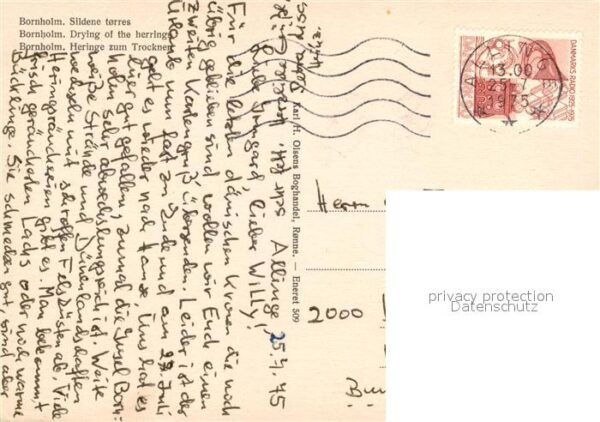 Bornholm. Sildene tørres
Bornholm. Drying of the herrings
Bornholm. Heringe zum Trocknen
Karl H. Olsens Boghandel, Rønne. — Eneret 509
DANMARKS RADIO 1925-1975
13.00
25.7
1975
Allinge 25.7.75
Liebe Irmgard, lieber Willy!
Für die letzten dänischen Kronen die noch
übrig geblieben sind wollen wir Euch einen
zweiten Kartengruß übersenden. Leider ist der
Urlaub nun fast zu Ende und am 27. Juli
geht es wieder nach Hause. Uns hat es
hier gut gefallen, zumal die Insel Born-
holm sehr abwechslungsreich ist. Weite
weiße Strände und Dünenlandschaften
wechseln mit schroffen Felsküsten ab. Viele
Heringsräuchereien gibt es. Man bekommt
frisch geräucherten Lachs oder noch warme
Bücklinge. Sie schmecken gut, sind aber
Herrn
2000
privacy protection
Datenschutz